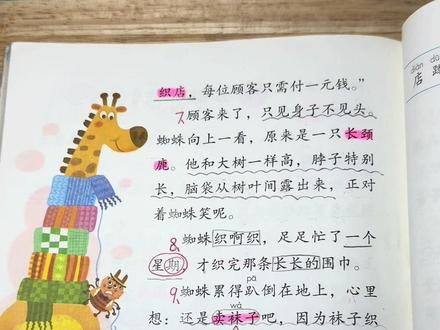 织店，每位顾客只需付一元钱。”
7.顾客来了，只见身子不见头。
蜘蛛向上一看，原来是一只长颈
鹿。他和大树一样高，脖子特别
长，脑袋从树叶间露出来，正对
着蜘蛛笑呢。
8.蜘蛛织啊织，足足忙了一个
星期，才织完那条长长的围巾。
pā
9.蜘蛛累得趴倒在地上，心里
wà
想：还是卖袜子吧，因为袜子织
diàn
店